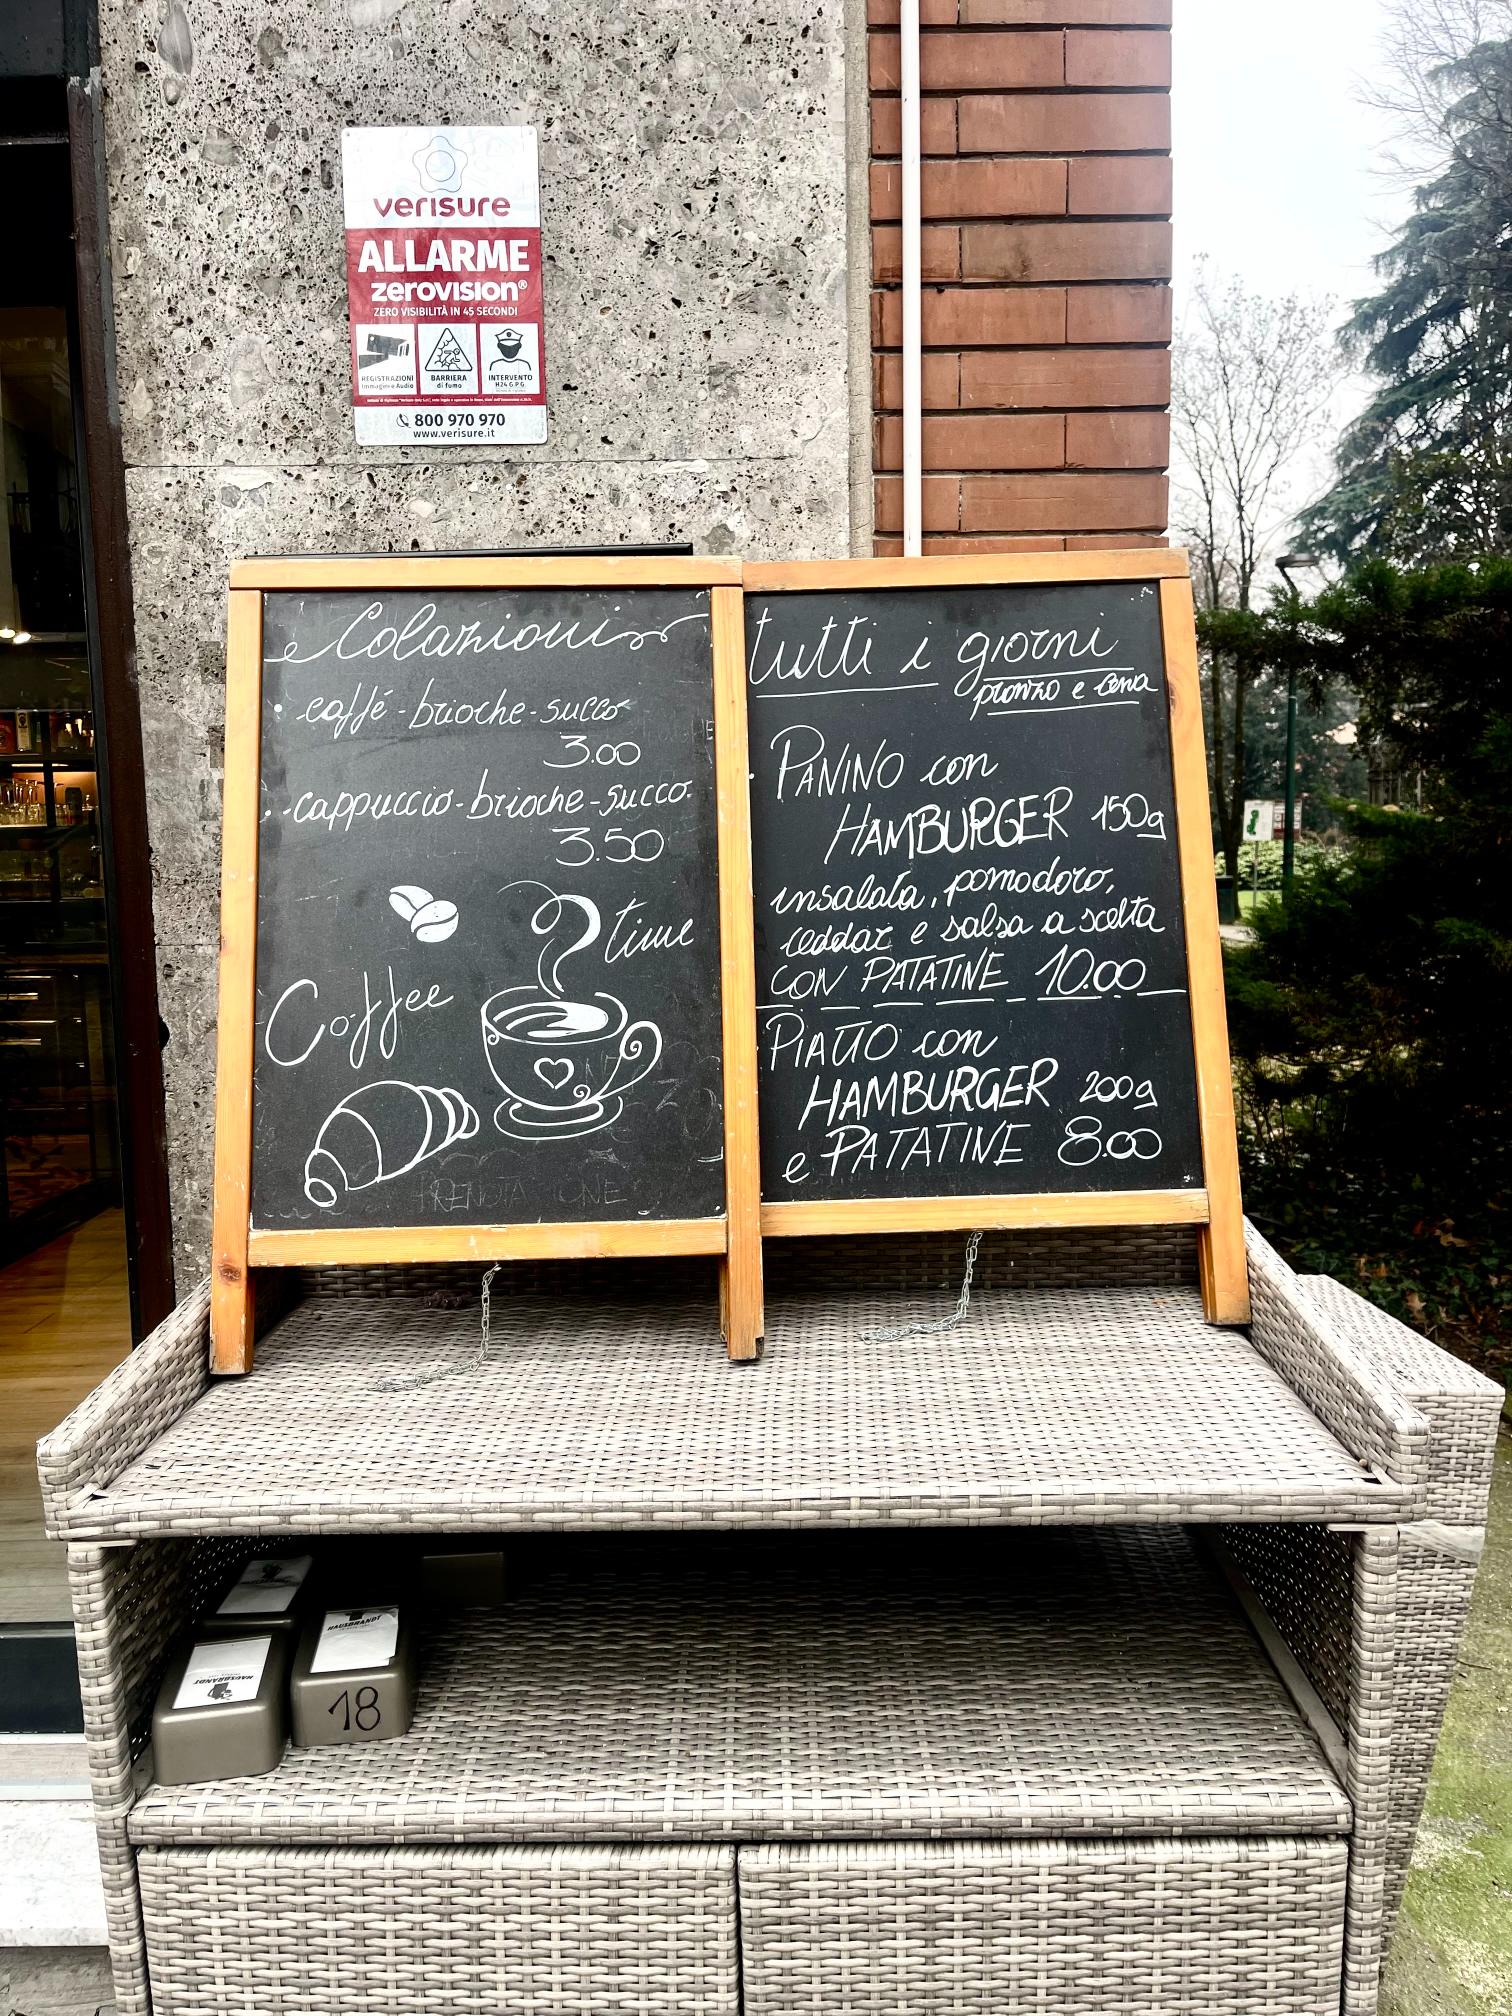 verisure
ALLARME
zerovision®
ZERO VISIBILITÀ IN 45 SECONDI
REGISTRAZIONI
Immagini e Audio
BARRIERA
di fumo
INTERVENTO
H24 G.P.G.
800 970 970
www.verisure.it
Colazioni
caffé-brioche-succo
3.00
cappuccio-brioche-succo
3.50
time
Coffee
PRENOTA
tutti i giorni
pranzo e cena
PANINO con
HAMBURGER 150g
insalata, pomodoro,
ceddar e salsa a scelta
CON PATATINE 10.00
PIATTO con
HAMBURGER 200g
e PATATINE 8.00
HAUSBRANDT
HAUSBRANDT
18